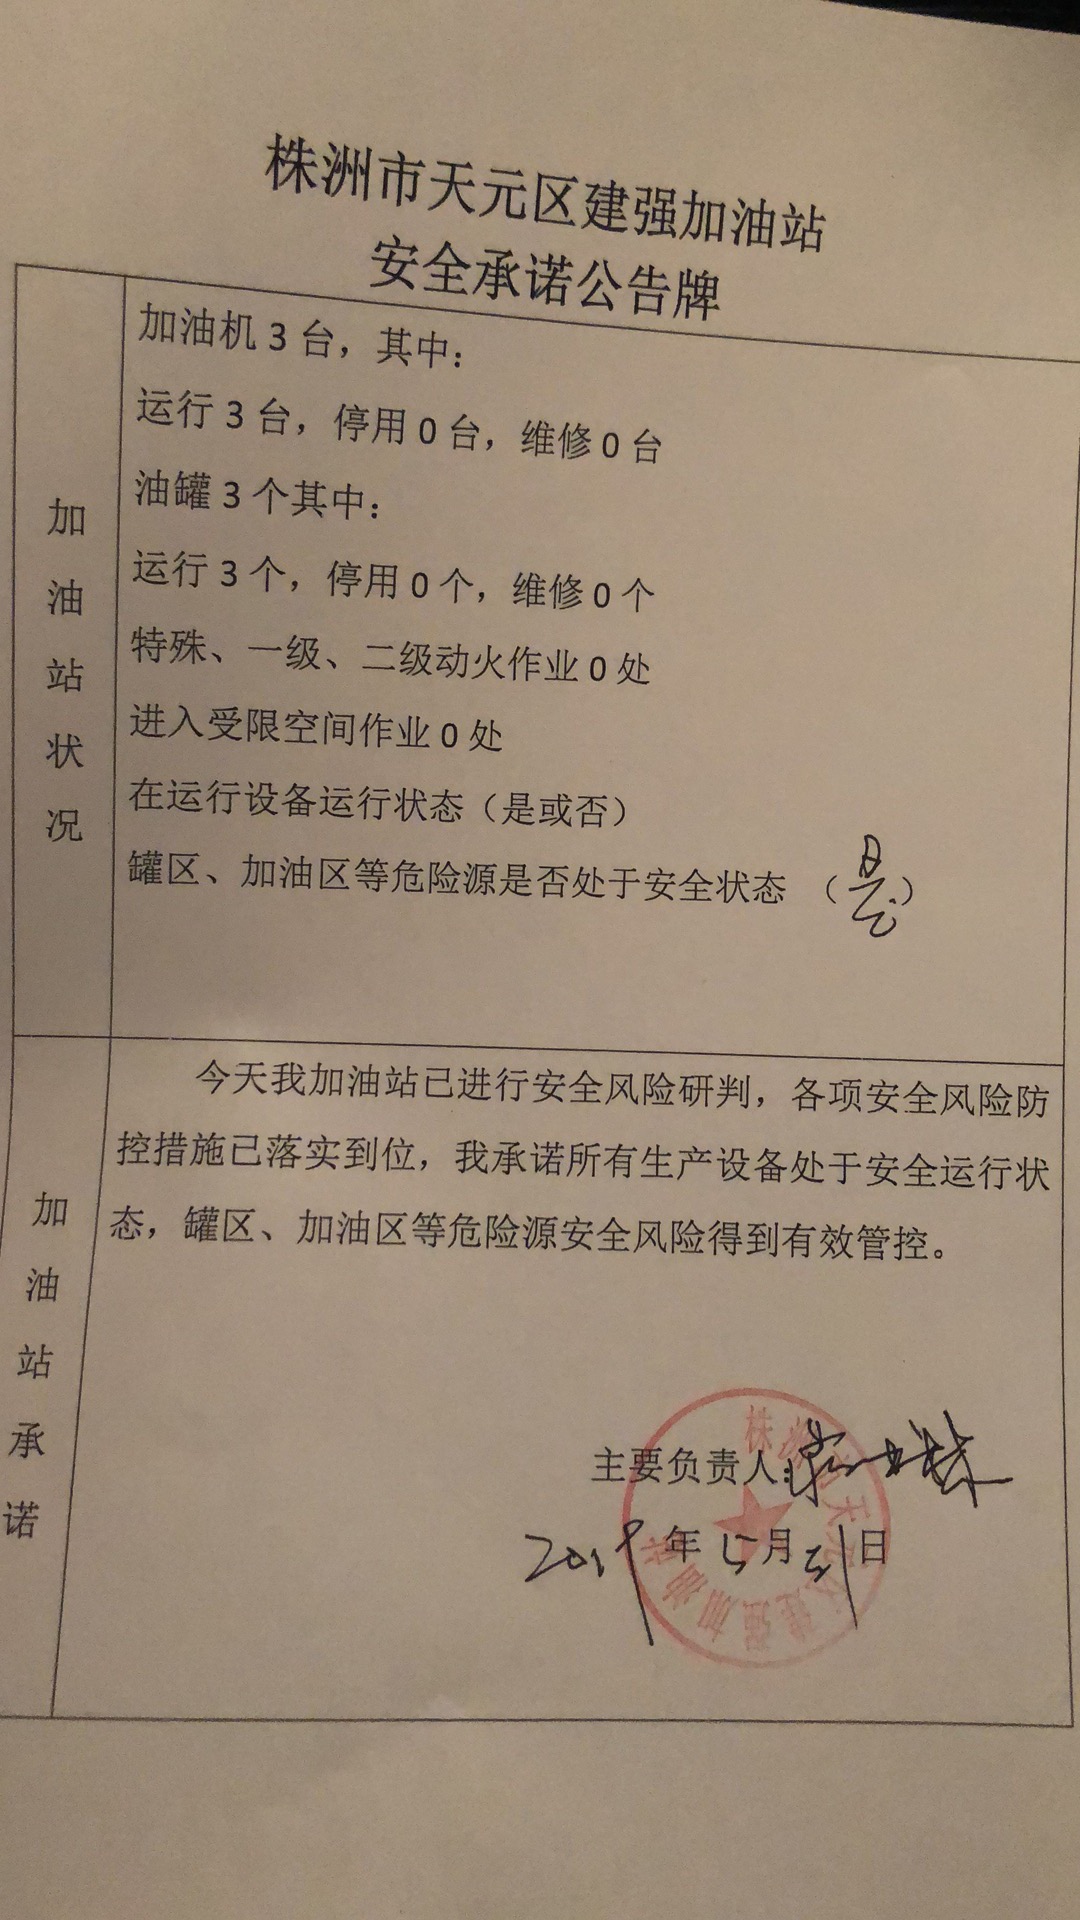 株洲市天元区建强加油站
安全承诺公告牌
加油站状况
加油机3台，其中：
运行3台，停用0台，维修0台
油罐3个其中：
运行3个，停用0个，维修0个
特殊、一级、二级动火作业0处
进入受限空间作业0处
在运行设备运行状态（是或否）
罐区、加油区等危险源是否处于安全状态 （是）
加油站承诺
今天我加油站已进行安全风险研判，各项安全风险防
控措施已落实到位，我承诺所有生产设备处于安全运行状
态，罐区、加油区等危险源安全风险得到有效管控。
主要负责人：
2019年5月21日
株洲市天元区建强加油站